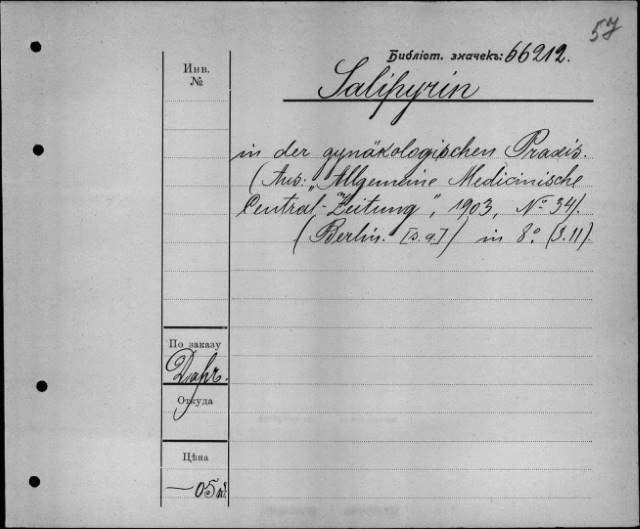 57
Библіот. значекъ: 66212.
Инв.
№
Salipyrin
in der gynäkologischen Praxis.
(Aus: „Allgemeine Medicinische
Central-Zeitung", 1903, № 34).
(Berlin. [s. a.]) in 8° (S. 11).
По заказу
Откуда
Цѣна
— 05 к.